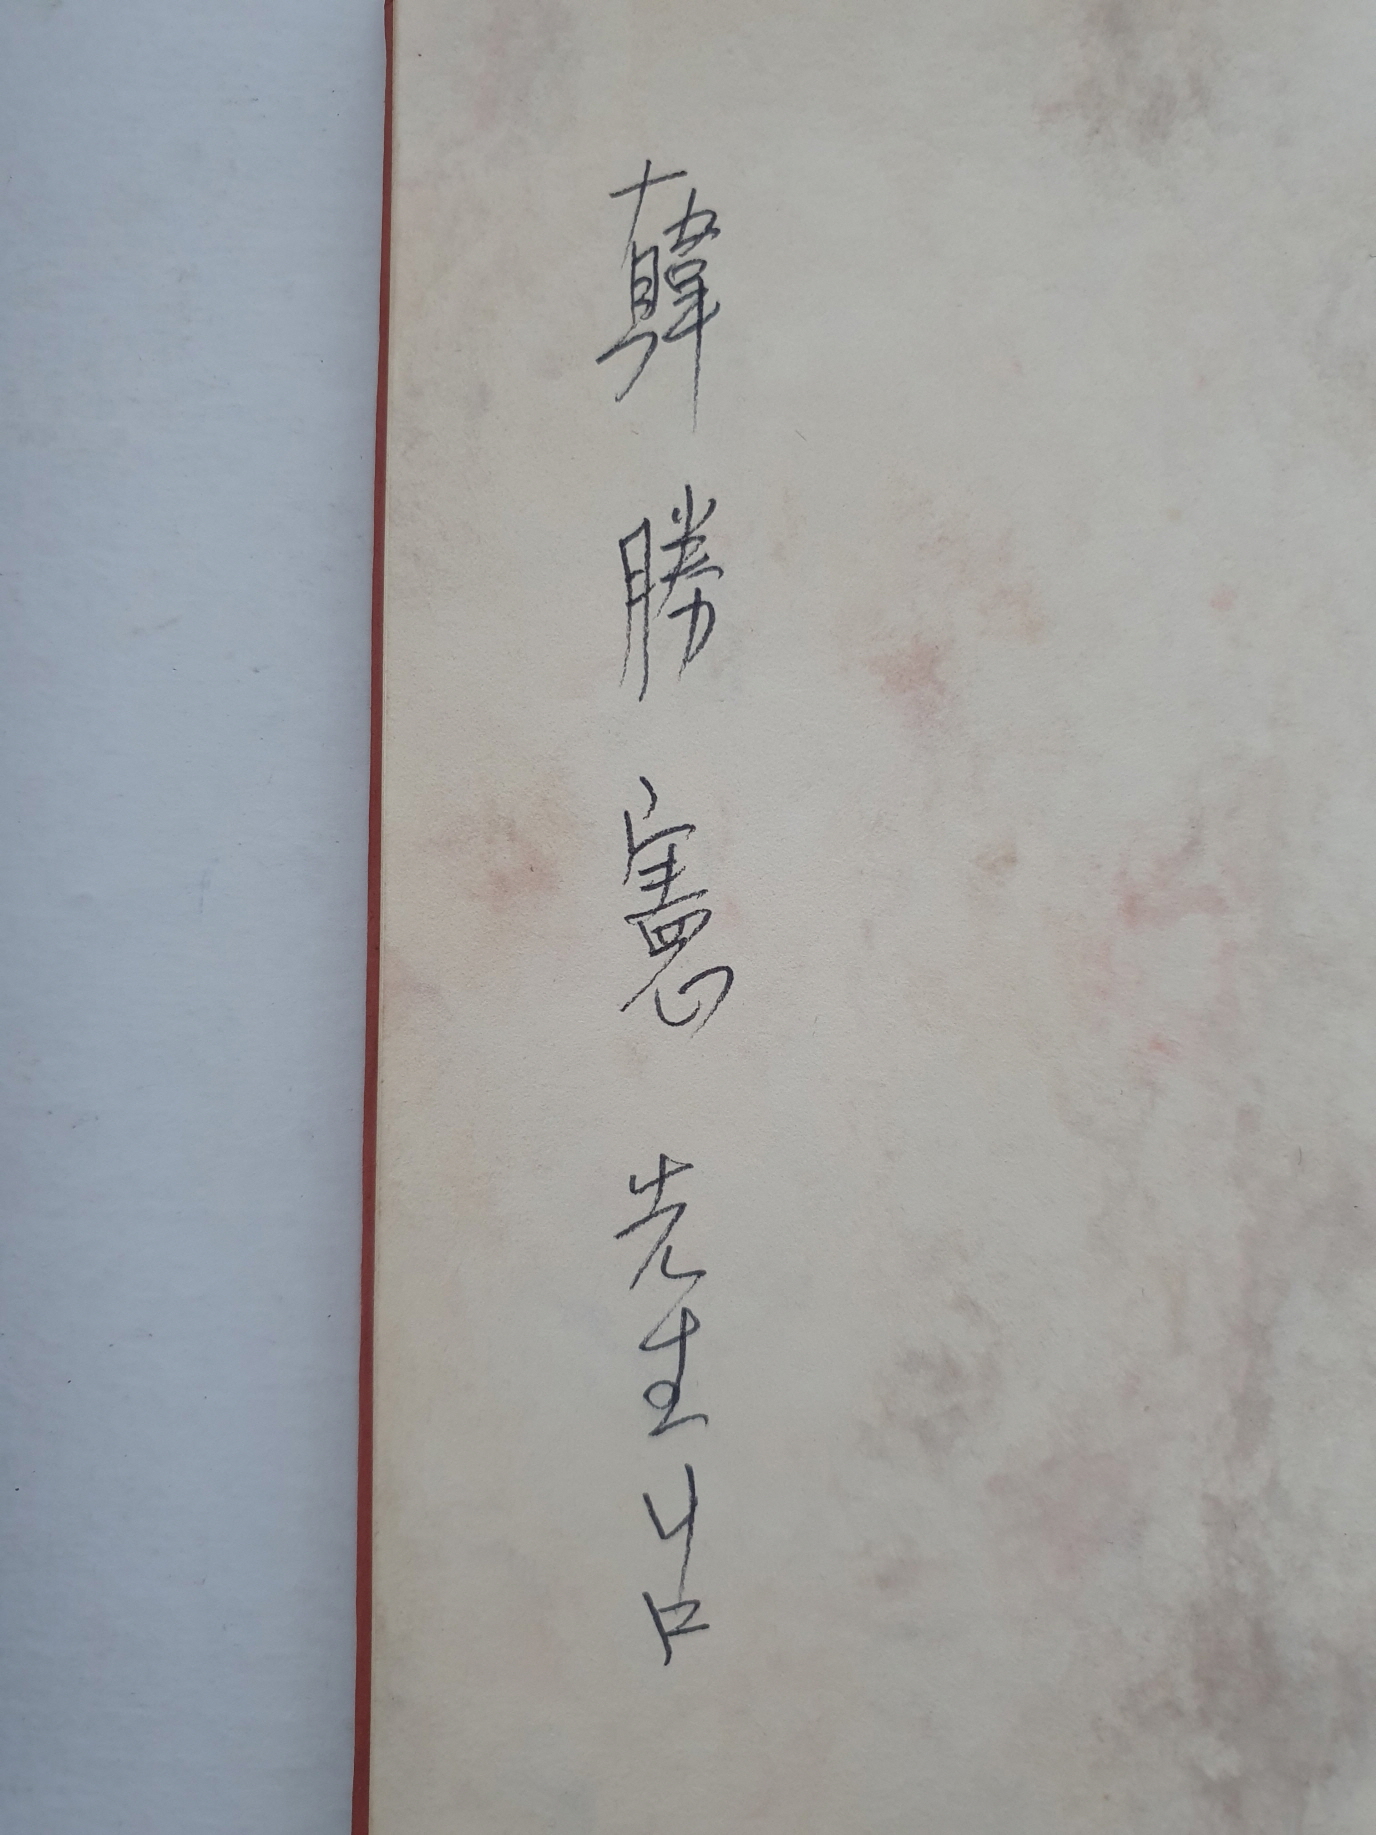 韓勝憲先生님